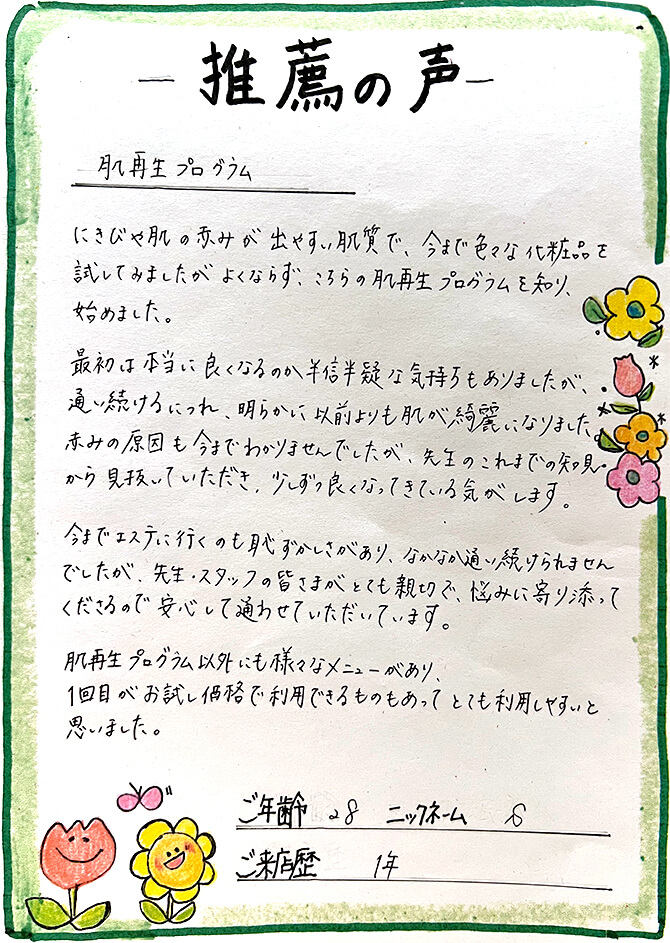 推薦の声
肌再生プログラム
にきびや肌の赤みが出やすい肌質で、今まで色々な化粧品を
試してみましたがよくならず、こちらの肌再生プログラムを知り、
始めました。
最初は本当に良くなるのか半信半疑な気持ちもありましたが、
通い続けるにつれ、明らかに以前よりも肌が綺麗になりました。
赤みの原因も今までわかりませんでしたが、先生のこれまでの知見
から見抜いていただき、少しずつ良くなってきている気がします。
今までエステに行くのも恥ずかしさがあり、なかなか通い続けられません
でしたが、先生・スタッフの皆さまがとても親切で、悩みに寄り添って
くださるので安心して通わせていただいています。
肌再生プログラム以外にも様々なメニューがあり、
1回目がお試し価格で利用できるものもあってとても利用しやすいと
思いました。
ご年齢 28 ニックネーム
ご来店歴 1年